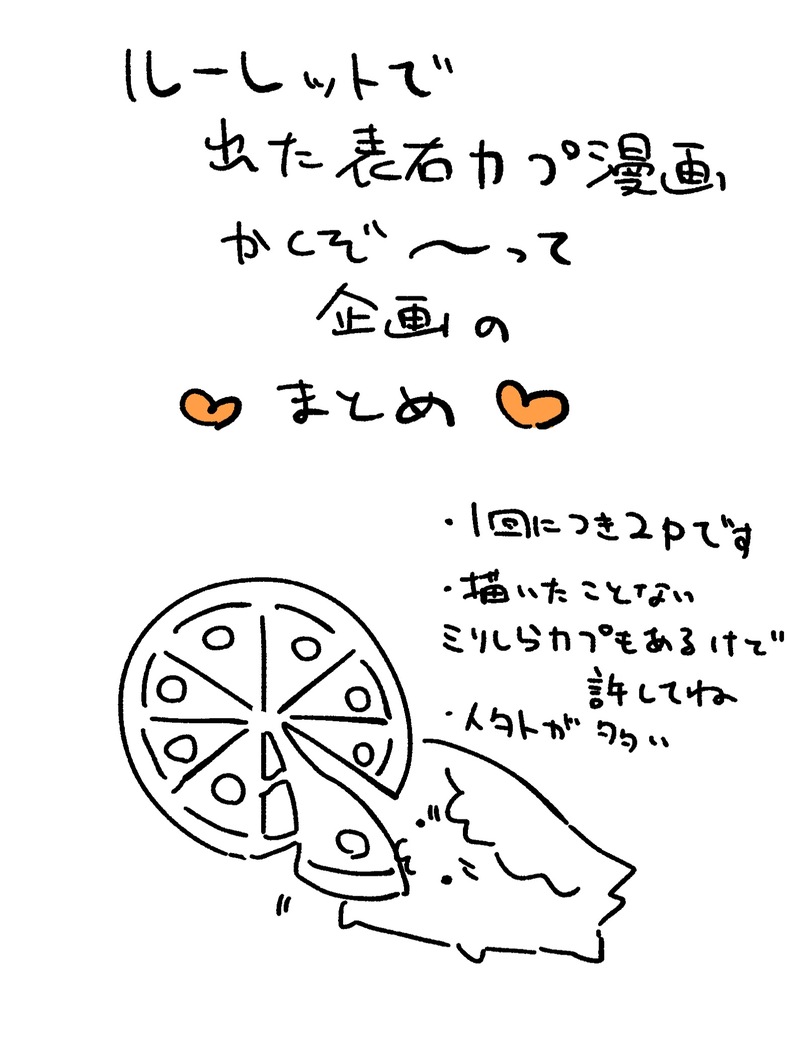 ルーレットで
出た表右カプ漫画
かくぞ〜って
企画の
まとめ
・1回につき2pです
・描いたことない
ミリしらカプもあるけど
許してね
・イタトが多い